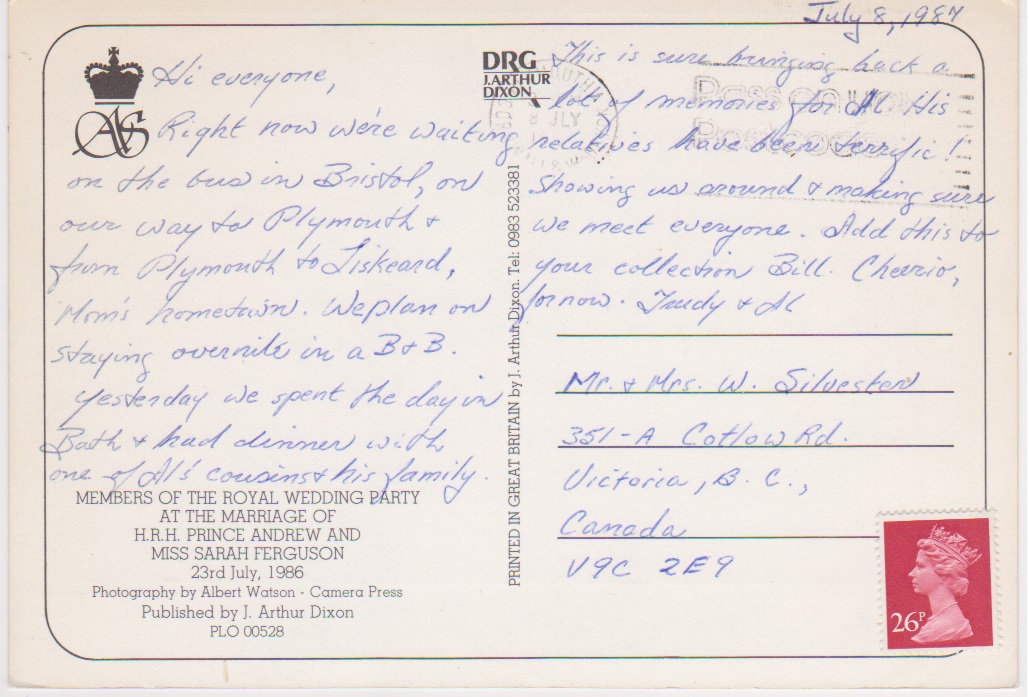 July 8, 1987
AS
Hi everyone,
Right now we're waiting
on the bus in Bristol, on
our way to Plymouth &
from Plymouth to Liskeard,
Mom's hometown. We plan on
staying overnite in a B & B.
Yesterday we spent the day in
Bath & had dinner with
one of Al's cousins & his family.
MEMBERS OF THE ROYAL WEDDING PARTY
AT THE MARRIAGE OF
H.R.H. PRINCE ANDREW AND
MISS SARAH FERGUSON
23rd July, 1986
Photography by Albert Watson - Camera Press
Published by J. Arthur Dixon
PLO 00528
DRG
J.ARTHUR
DIXON
PRINTED IN GREAT BRITAIN by J. Arthur Dixon. Tel: 0983 523381
8 JLY
Pass on
This is sure bringing back a
lot of memories for Al. His
relatives have been terrific!
Showing us around & making sure
we meet everyone. Add this to
your collection Bill. Cheerio,
for now. Trudy & Al
Mr. & Mrs. W. Silvester
351-A Cotlow Rd.
Victoria, B.C.,
Canada
V9C 2E9
26P